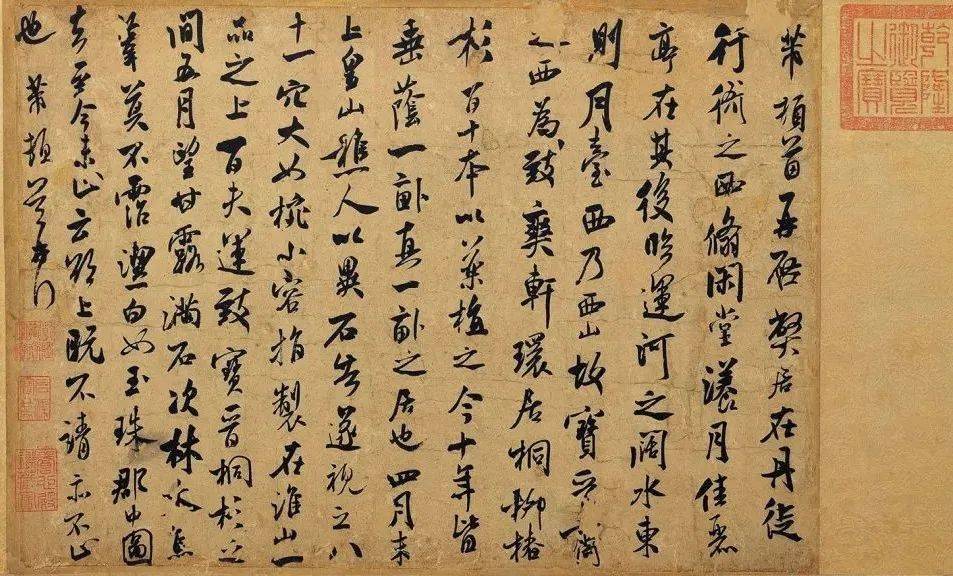 乾隆御覽之寶
芾頓首再啟弊居在丹徒
行衙之西翛閑堂漾月佳麗
亭在其後臨運河之闊水東
則月臺西乃西山故寶晉齋
之西為致爽軒環居桐柳椿
杉百十本以藥植之今十年皆
垂蔭一畝真一畝之居也四月末
上皇山樵人以異石告遂視之八
十一穴大如椀小容指製在淮山一
品之上百夫運致寶晉桐杉之
間五月望甘露滿石次林木焉
莫不霑潔白如玉珠郡中圖
去至今未止云欲上既不請亦不止
也 芾頓首